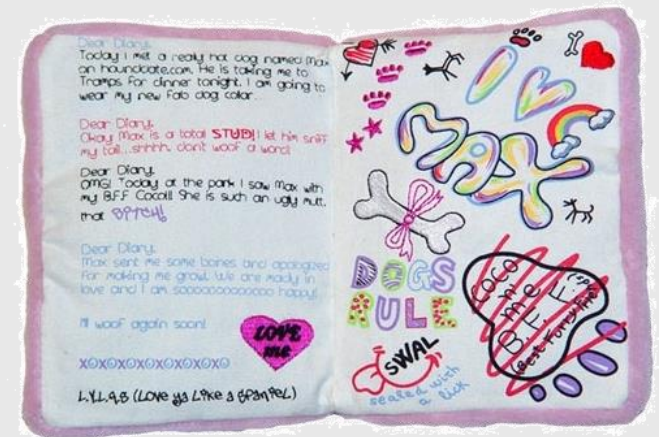 Dear Diary,
Today I met a really hot dog named Max
on hounddate.com. He is taking me to
Tramps for dinner tonight. I am going to
wear my new fab dog collar...
Dear Diary,
Okay Max is a total STUD! I let him sniff
my tail...shhhh, don't woof a word
Dear Diary,
OMG! Today at the park I saw Max with
my B.F.F Coco!!! She is such an ugly mutt,
that BITCH!
Dear Diary,
Max sent me some bones and apologized
for making me growl. We are madly in
love and I am soooooooooooo happy!
I'll woof again soon!
XOXOXOXOXOXOXOXO
L.Y.L.A.S (Love ya Like a Spaniel)
LOVE
me
I
MAX
DOGS
RULE
SWAL
sealed with
a lick
COCO
n me
B.F.F.
(Best Furry